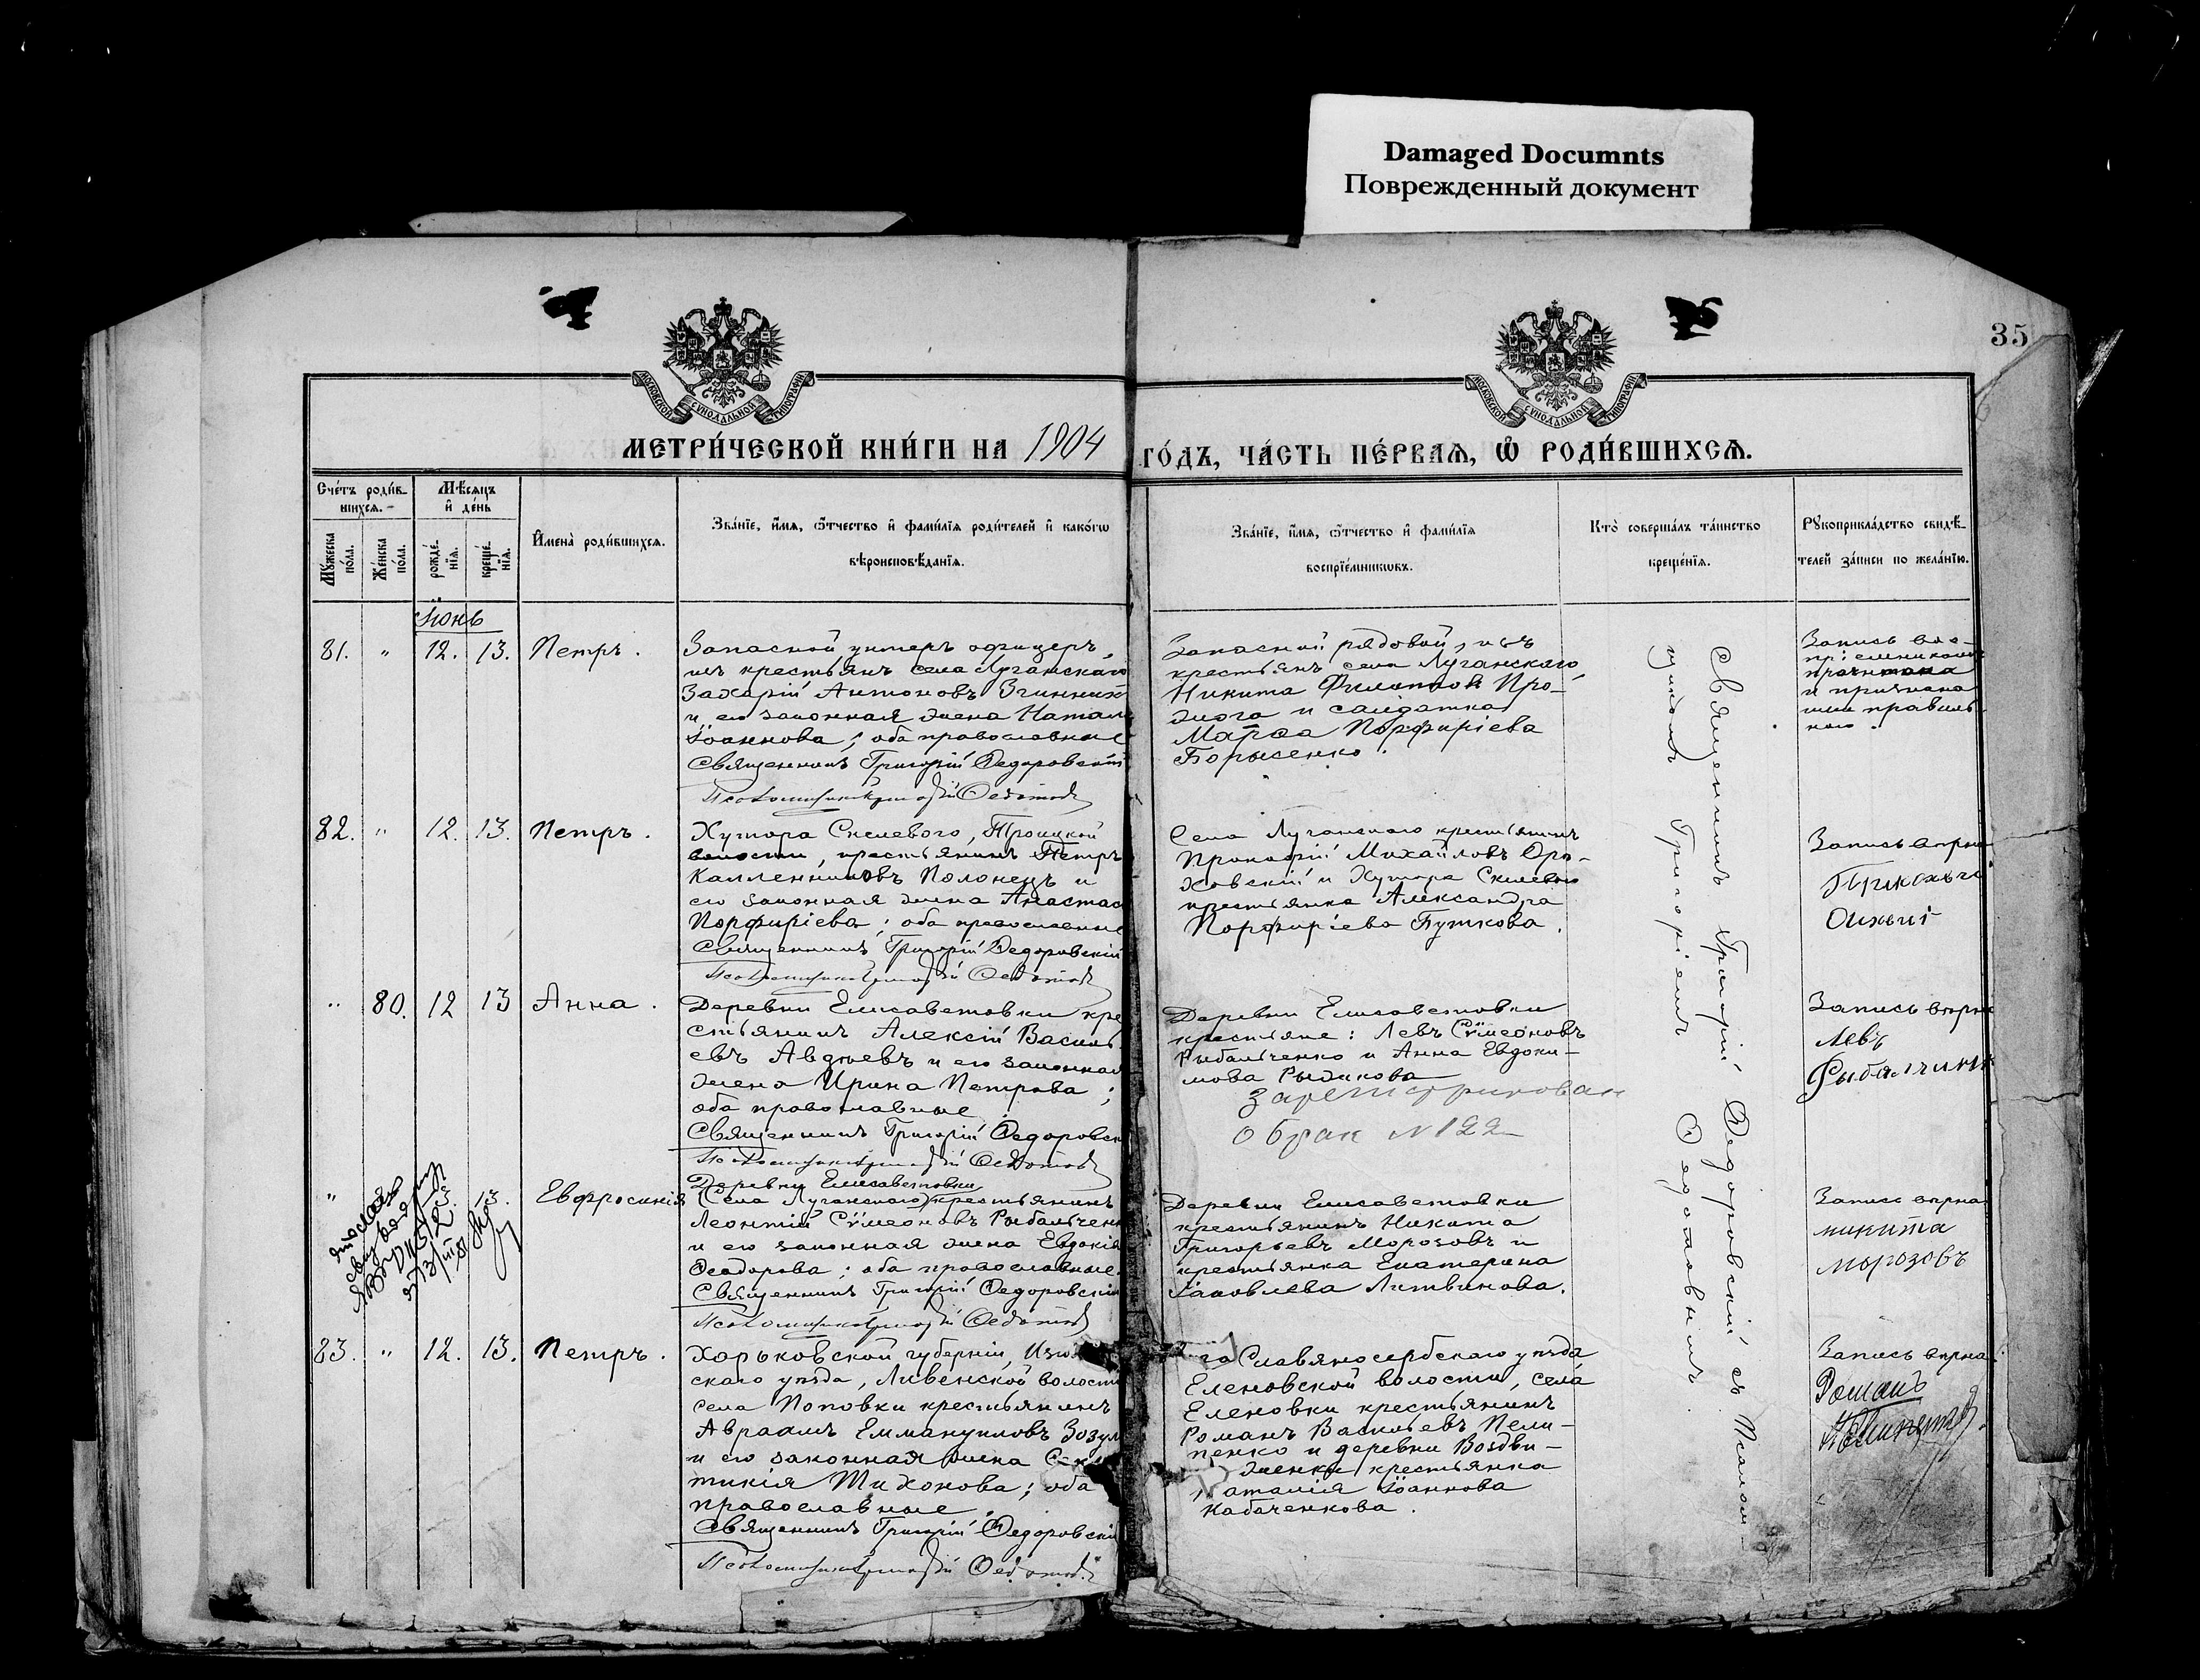 Damaged Documnts
Поврежденный документ
35
МОСКОВСКОЙ СѴНОДАЛЬНОЙ ТИПОГРАФІИ
МОСКОВСКОЙ СѴНОДАЛЬНОЙ ТИПОГРАФІИ
МЕТРИ́ЧЕСКОЙ КНИ́ГИ НА 1904 ГО́ДЪ, ЧА́СТЬ ПЕ́РВАѦ, Ѽ РОДИ́ВШИХСѦ.
Сче́тъ роди́в-
шихсѧ.
Мѣ́сѧцъ
и҆ де́нь
Мꙋ́жеска по́ла.
Же́нска по́ла.
рожде́-
нїѧ.
креще́-
нїѧ.
И҆мена̀ роди́вшихсѧ.
Зва́нїе, и҆́мѧ, ѻ҆́тчество и҆ фами́лїѧ роди́телей и҆ како́гѡ
вѣроисповѣ́данїѧ.
Зва́нїе, и҆́мѧ, ѻ҆́тчество и҆ фами́лїѧ
воспрїе́мникѡвъ.
Кто̀ соверша́лъ та́инство
креще́нїѧ.
Рꙋкоприкла́дство свидѣ́-
телей за́писи по жела́нїю.
Іюнь
81. " 12. 13. Петръ.
Запасной унтеръ офицеръ,
изъ крестьянъ села Луганскаго
Захарій Антоновъ
и его законная жена Натал
Іоаннова; оба православные
Священникъ Григорій Ѳедоровскій
Псаломщикъ Григорій Ѳедотов
Запасной рядовой, изъ
крестьянъ села Луганскаго
Никита Филиппов Про-
жога и солдатка
Марѳа Порфиріева
Борисенко.
Запись вос-
пріемниками
прочитана
и признана
ими правиль-
ною.
82. " 12. 13. Петръ.
Хутора Скелевого, Троицкой
волости, крестьянинъ Петръ
Каллениковъ Полонецъ и
его законная жена Анастас
Порфиріева; оба православные
Священникъ Григорій Ѳедоровскій
Псаломщикъ Григорій Ѳедотов
Села Луганскаго крестьянинъ
Прокофій Михайловъ Орѣ-
ховскій и Хутора Скелевого
крестьянка Александра
Порфиріева Буткова.
Запись вѣрна
" 80. 12 13 Анна.
Деревни Елисаветовки кре
стьянинъ Алексій Василь
евъ Авдѣевъ и его законная
жена Ирина Петрова;
оба православные.
Священникъ Григорій Ѳедоровск
Псаломщикъ Григорій Ѳедотов
Деревни Елисаветовки
крестьяне: Левъ Сѵмеоновъ
Рыбальченко и Анна Евдоки-
мова Рыжкова
зарегистрирован
о брак №122
Запись вѣрна
Левъ
" 13. Евфросинія
Деревни Елисаветовки
(Села Луганскаго) крестьянинъ
Леонтій Сѵмеоновъ Рыбальчен
и его законная жена Евдокія
Ѳеодорова; оба православные.
Священникъ Григорій Ѳедоровскій
Псаломщикъ Григорій Ѳедотов
Деревни Елисаветовки
крестьянинъ Никита
Григорьевъ Морозовъ и
крестьянка Екатерина
Іаковлева Литвинова.
Запись вѣрна
никита
морозовъ
83. " 12. 13. Петръ.
Харьковской губерніи, Изю
скаго уѣзда, Ливенской волости
села Поповки крестьянинъ
Авраамъ Еммануиловъ Зозул
и его законная жена
тикія Тихонова; оба
православные.
Священникъ Григорій Ѳедоровскій
Псаломщикъ Григорій Ѳедотов
го Славяносербскаго уѣзда
Еленовской волости, села
Еленовки крестьянинъ
Романъ Васильевъ Пели-
пенко и деревни Воздви-
женки крестьянка
Наталія Іоаннова
Кабаченкова.
Запись вѣрна.
Романъ
Священникъ Григорій Ѳедоровскій съ Псалом-
щикомъ Григоріемъ Ѳедотовымъ.